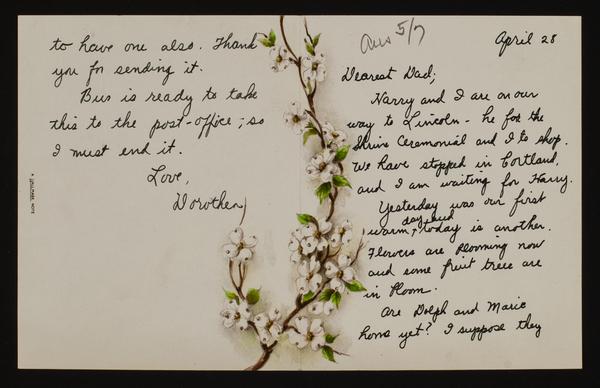 to have one also. Thank
you for sending it.
Bus is ready to take
this to the post-office; so
I must end it.
Love,
Dorothea
A HALLMARK NOTE
Ans 5/7
April 28
Dearest Dad;
Harry and I are on our
way to Lincoln - he for the
Shrine Ceremonial and I to shop.
We have stopped in Cortland,
and I am waiting for Harry.
Yesterday was our first
warm day and today is another.
Flowers are blooming now
and some fruit trees are
in bloom.
Are Dolph and Marie
home yet? I suppose they